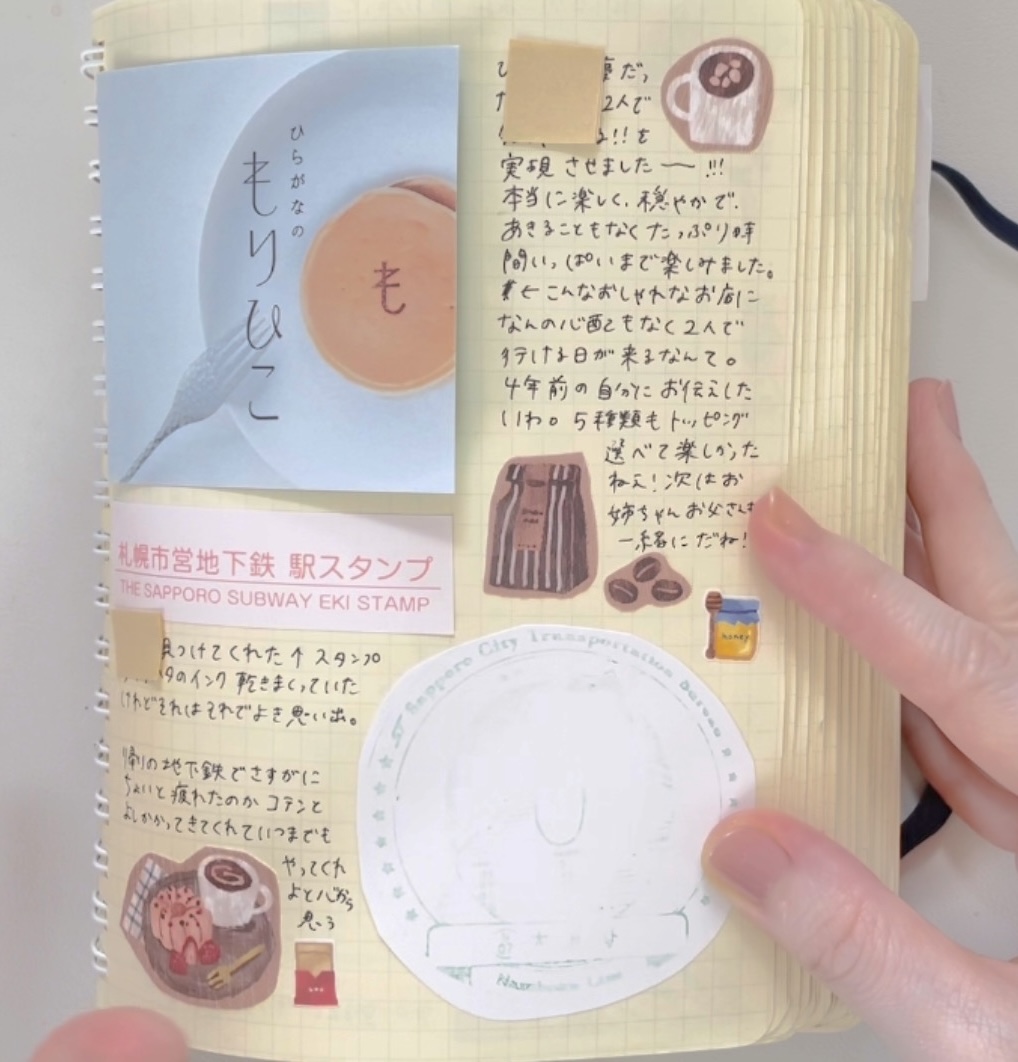 ひらがなの
もりひこ
も
だ、
2人で
!!を
実現させました〜!!!
本当に楽しく、穏やかで、
あきることもなくたっぷり時
間いっぱいまで楽しみました。
こんなおしゃれなお店に
なんの心配もなく2人で
行ける日が来るなんて。
4年前の自分にお伝えした
いわ。5種類もトッピング
選べて楽しかった
ねえ!次はお
姉ちゃんお父さんも
一緒にだね!
札幌市営地下鉄 駅スタンプ
THE SAPPORO SUBWAY EKI STAMP
見つけてくれた↑スタンプ
のインク乾きまくっていた
けれどそれはそれでよき思い出。
帰りの地下鉄でさすがに
ちょいと疲れたのかコテンと
よしかかってきてくれていつまでも
やってくれ
よと心から
思う
honey
Sapporo City Transportation Bureau
Namboku Line